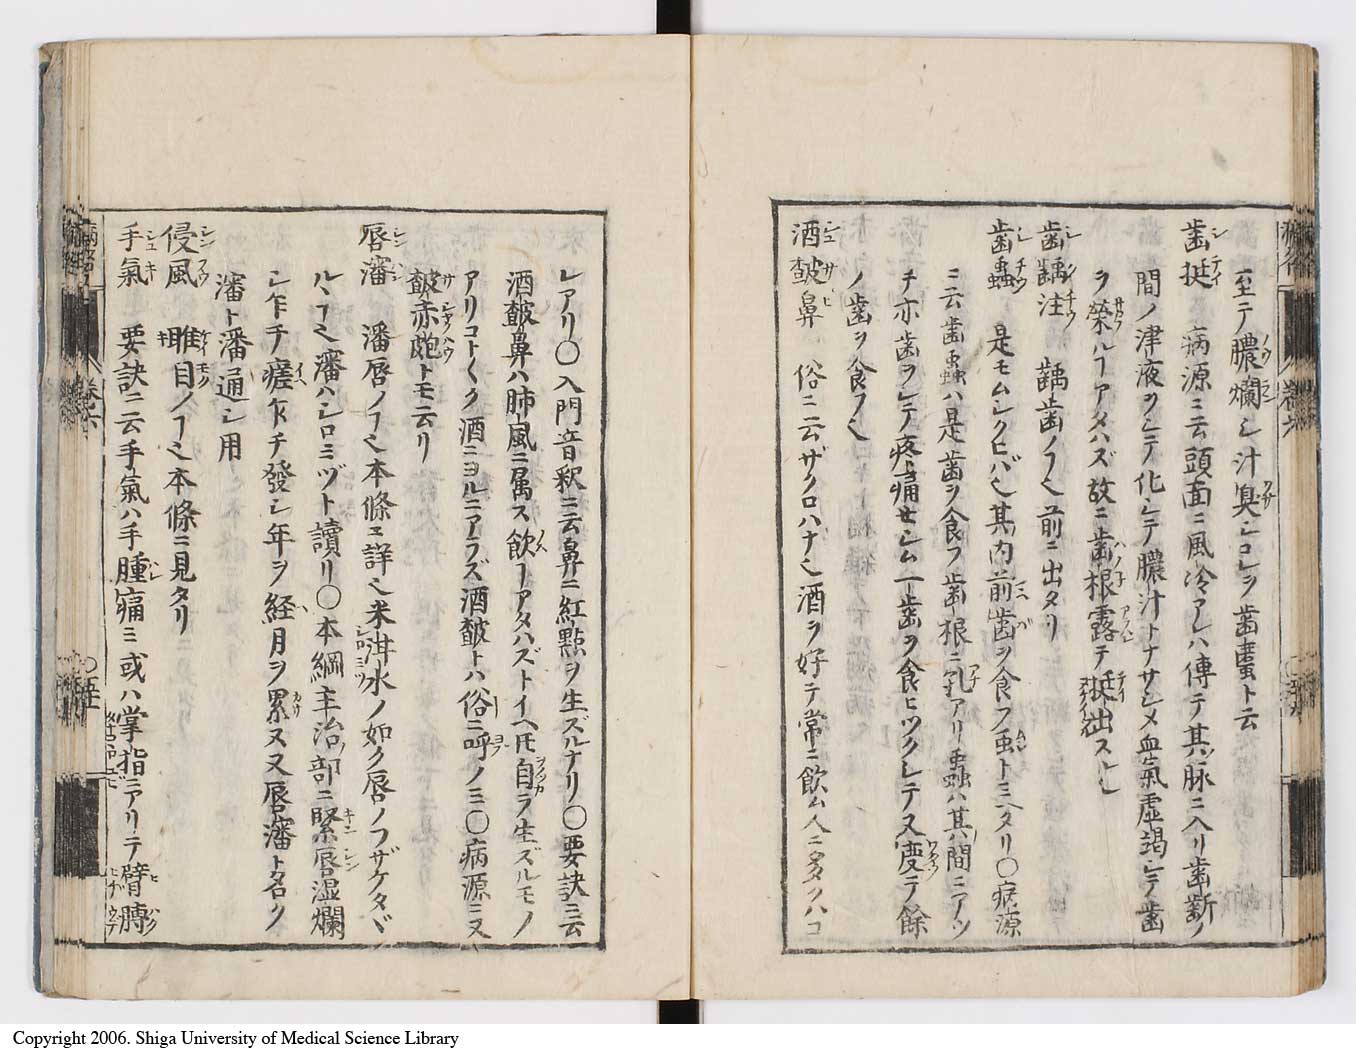 至テ膿爛シ汁臭シコレヲ歯䘌ト云
歯挺 病源ニ云頭面ニ風冷アレハ傳テ其脉ニ入リ歯断ノ
間ノ津液ヲシテ化シテ膿汁トナサシメ血氣虚竭シテ歯
ヲ榮ルヿアタハズ故ニ歯根露テ挺出スル也
歯齲注 齲歯ノヿ也前ニ出タリ
歯蟲 是モムシクヒバ也其内前歯ヲ食フ虫ト ミヘタリ〇病源
ニ云歯蟲ハ是歯ヲ食フ歯根ニ孔アリ蟲ハ其間ニアツ
チ亦歯ヲシテ疼痛セシム一歯ヲ食ヒツクシテ又度テ餘
ノ歯ヲ食フ也
酒皶鼻 俗ニ云ザクロハナ也酒ヲ好テ常ニ飲ム人ニ多クハコ
レアリ〇入門音釈ニ云鼻ニ紅點ヲ生ズルナリ〇要訣ニ云
酒皶鼻ハ肺風ニ属ス飲ヿアタハズトイヘ𪜈自ラ生ズルモノ
アリコト〱ク酒ニヨルニアラズ酒皶トハ俗ニ呼ノミ〇病源ニ又
皶赤皰トモ云リ
唇瀋 瀋唇ノヿ也本條ニ詳也米泔水ノ如ク唇ノフザケタヾ
ルヽヿ也瀋ハシロミヅト讀リ〇本綱主治部ニ緊唇湿爛
シ乍チ瘥乍チ發シ年ヲ経月ヲ累ヌ又唇瀋ト名ク
瀋ト潘通シ用
侵風 睢目ノヿ也本條ニ見タリ
手氣 要訣ニ云手氣ハ手腫痛ミ或ハ掌指ニアリテ臂膊